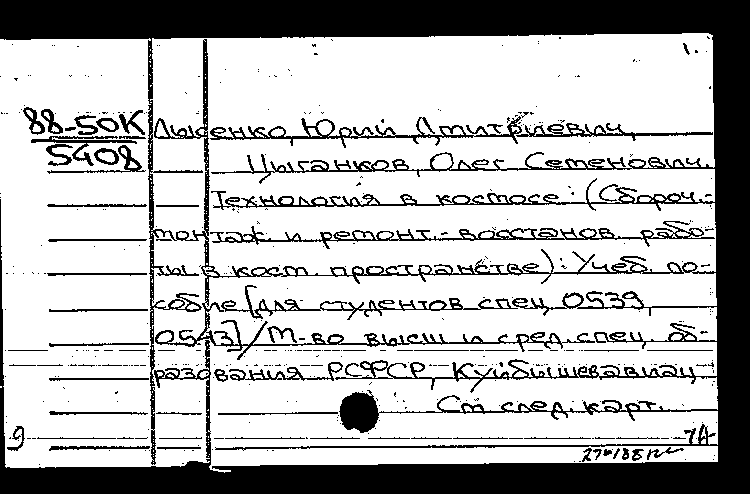 1.
88-50К Лысенко, Юрий Дмитриевич,
5408 Цыганков, Олег Семенович.
Технология в космосе: (Сбороч.-
монтаж. и ремонт.-восстанов. рабо-
ты в косм. пространстве): Учеб. по-
собие [для студентов спец. 0539,
0543]/М-во высш. и сред. спец. об-
разования РСФСР, Куйбышев. авиац.
См. след. карт.
9 7А